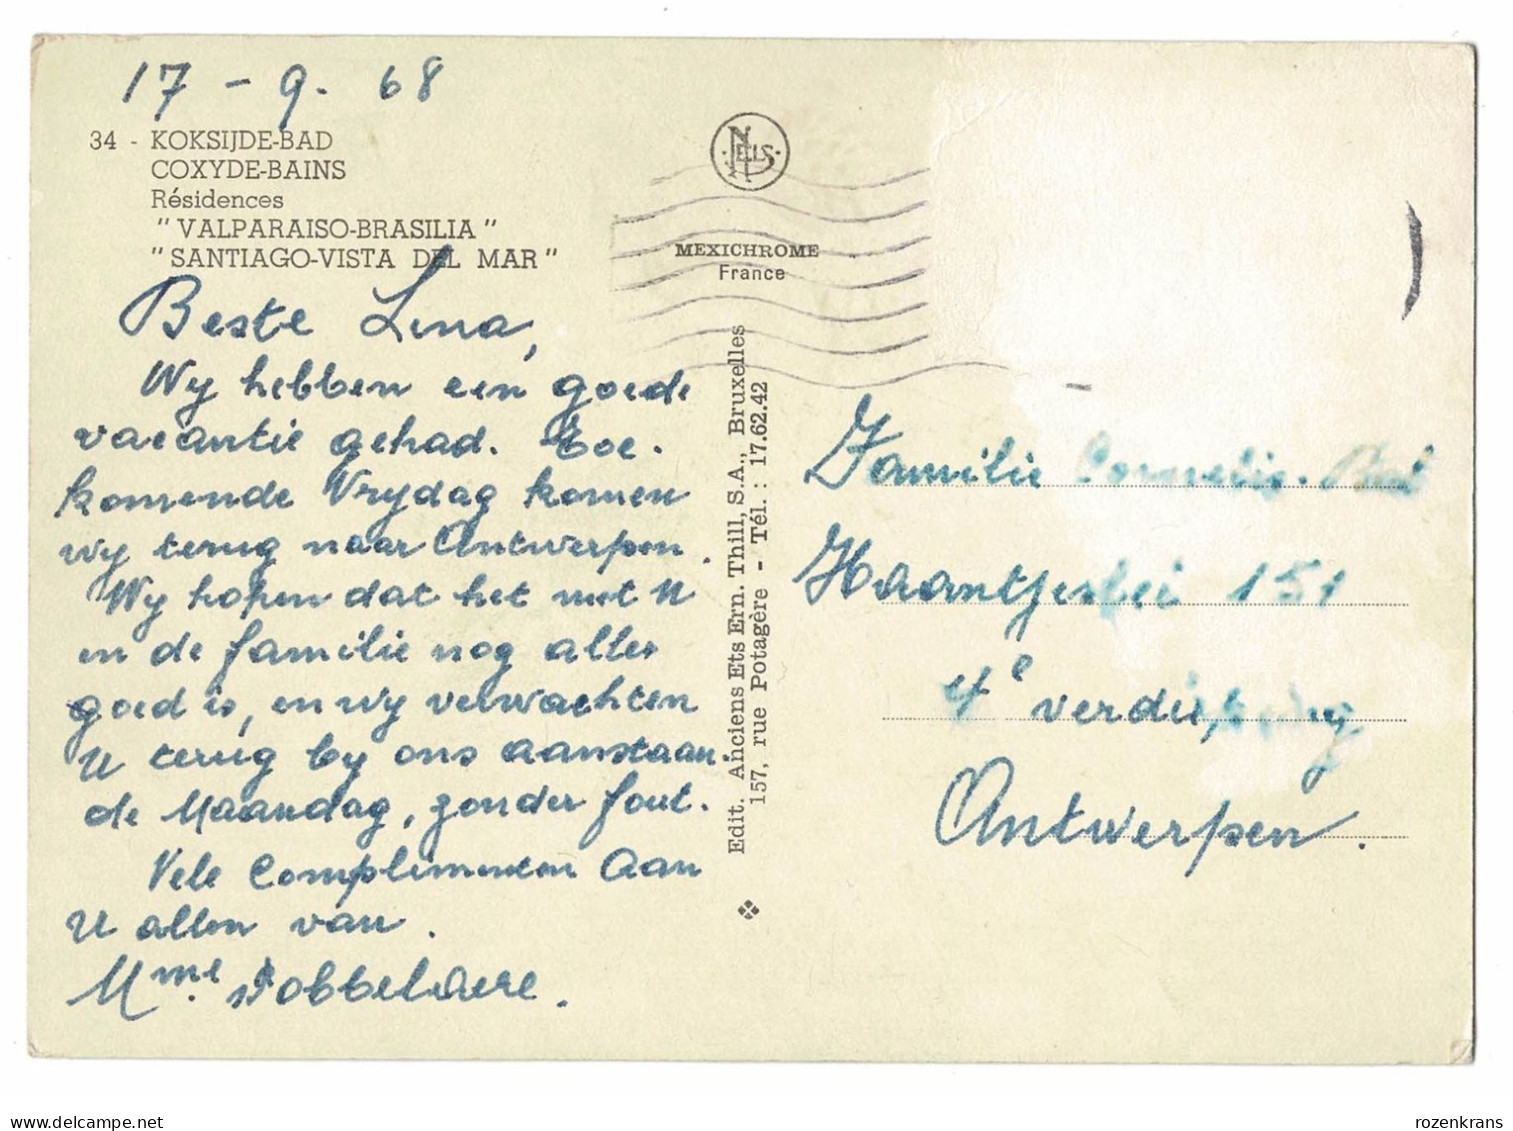 17 - 9. 68
34 - KOKSIJDE-BAD
COXYDE-BAINS
Résidences
"VALPARAISO-BRASILIA"
"SANTIAGO-VISTA DEL MAR"
Beste Lina,
Wy hebben een goede
vacantie gehad. Toe-
komende Vrydag komen
wy terug naar Antwerpen.
Wy hopen dat het met U
en de familie nog alles
goed is, en wy verwachten
U terug by ons aanstaan-
de Maandag, zonder fout.
Vele Complimenten aan
U allen van.
Mme. Dobbelaere.
NELS
MEXICHROME
France
Edit. Anciens Ets Ern. Thill, S.A., Bruxelles
157, rue Potagère - Tél. : 17.62.42
Familie Cornelis-
Haantjeslei 151
4e verdieping
Antwerpen.
rozenkrans